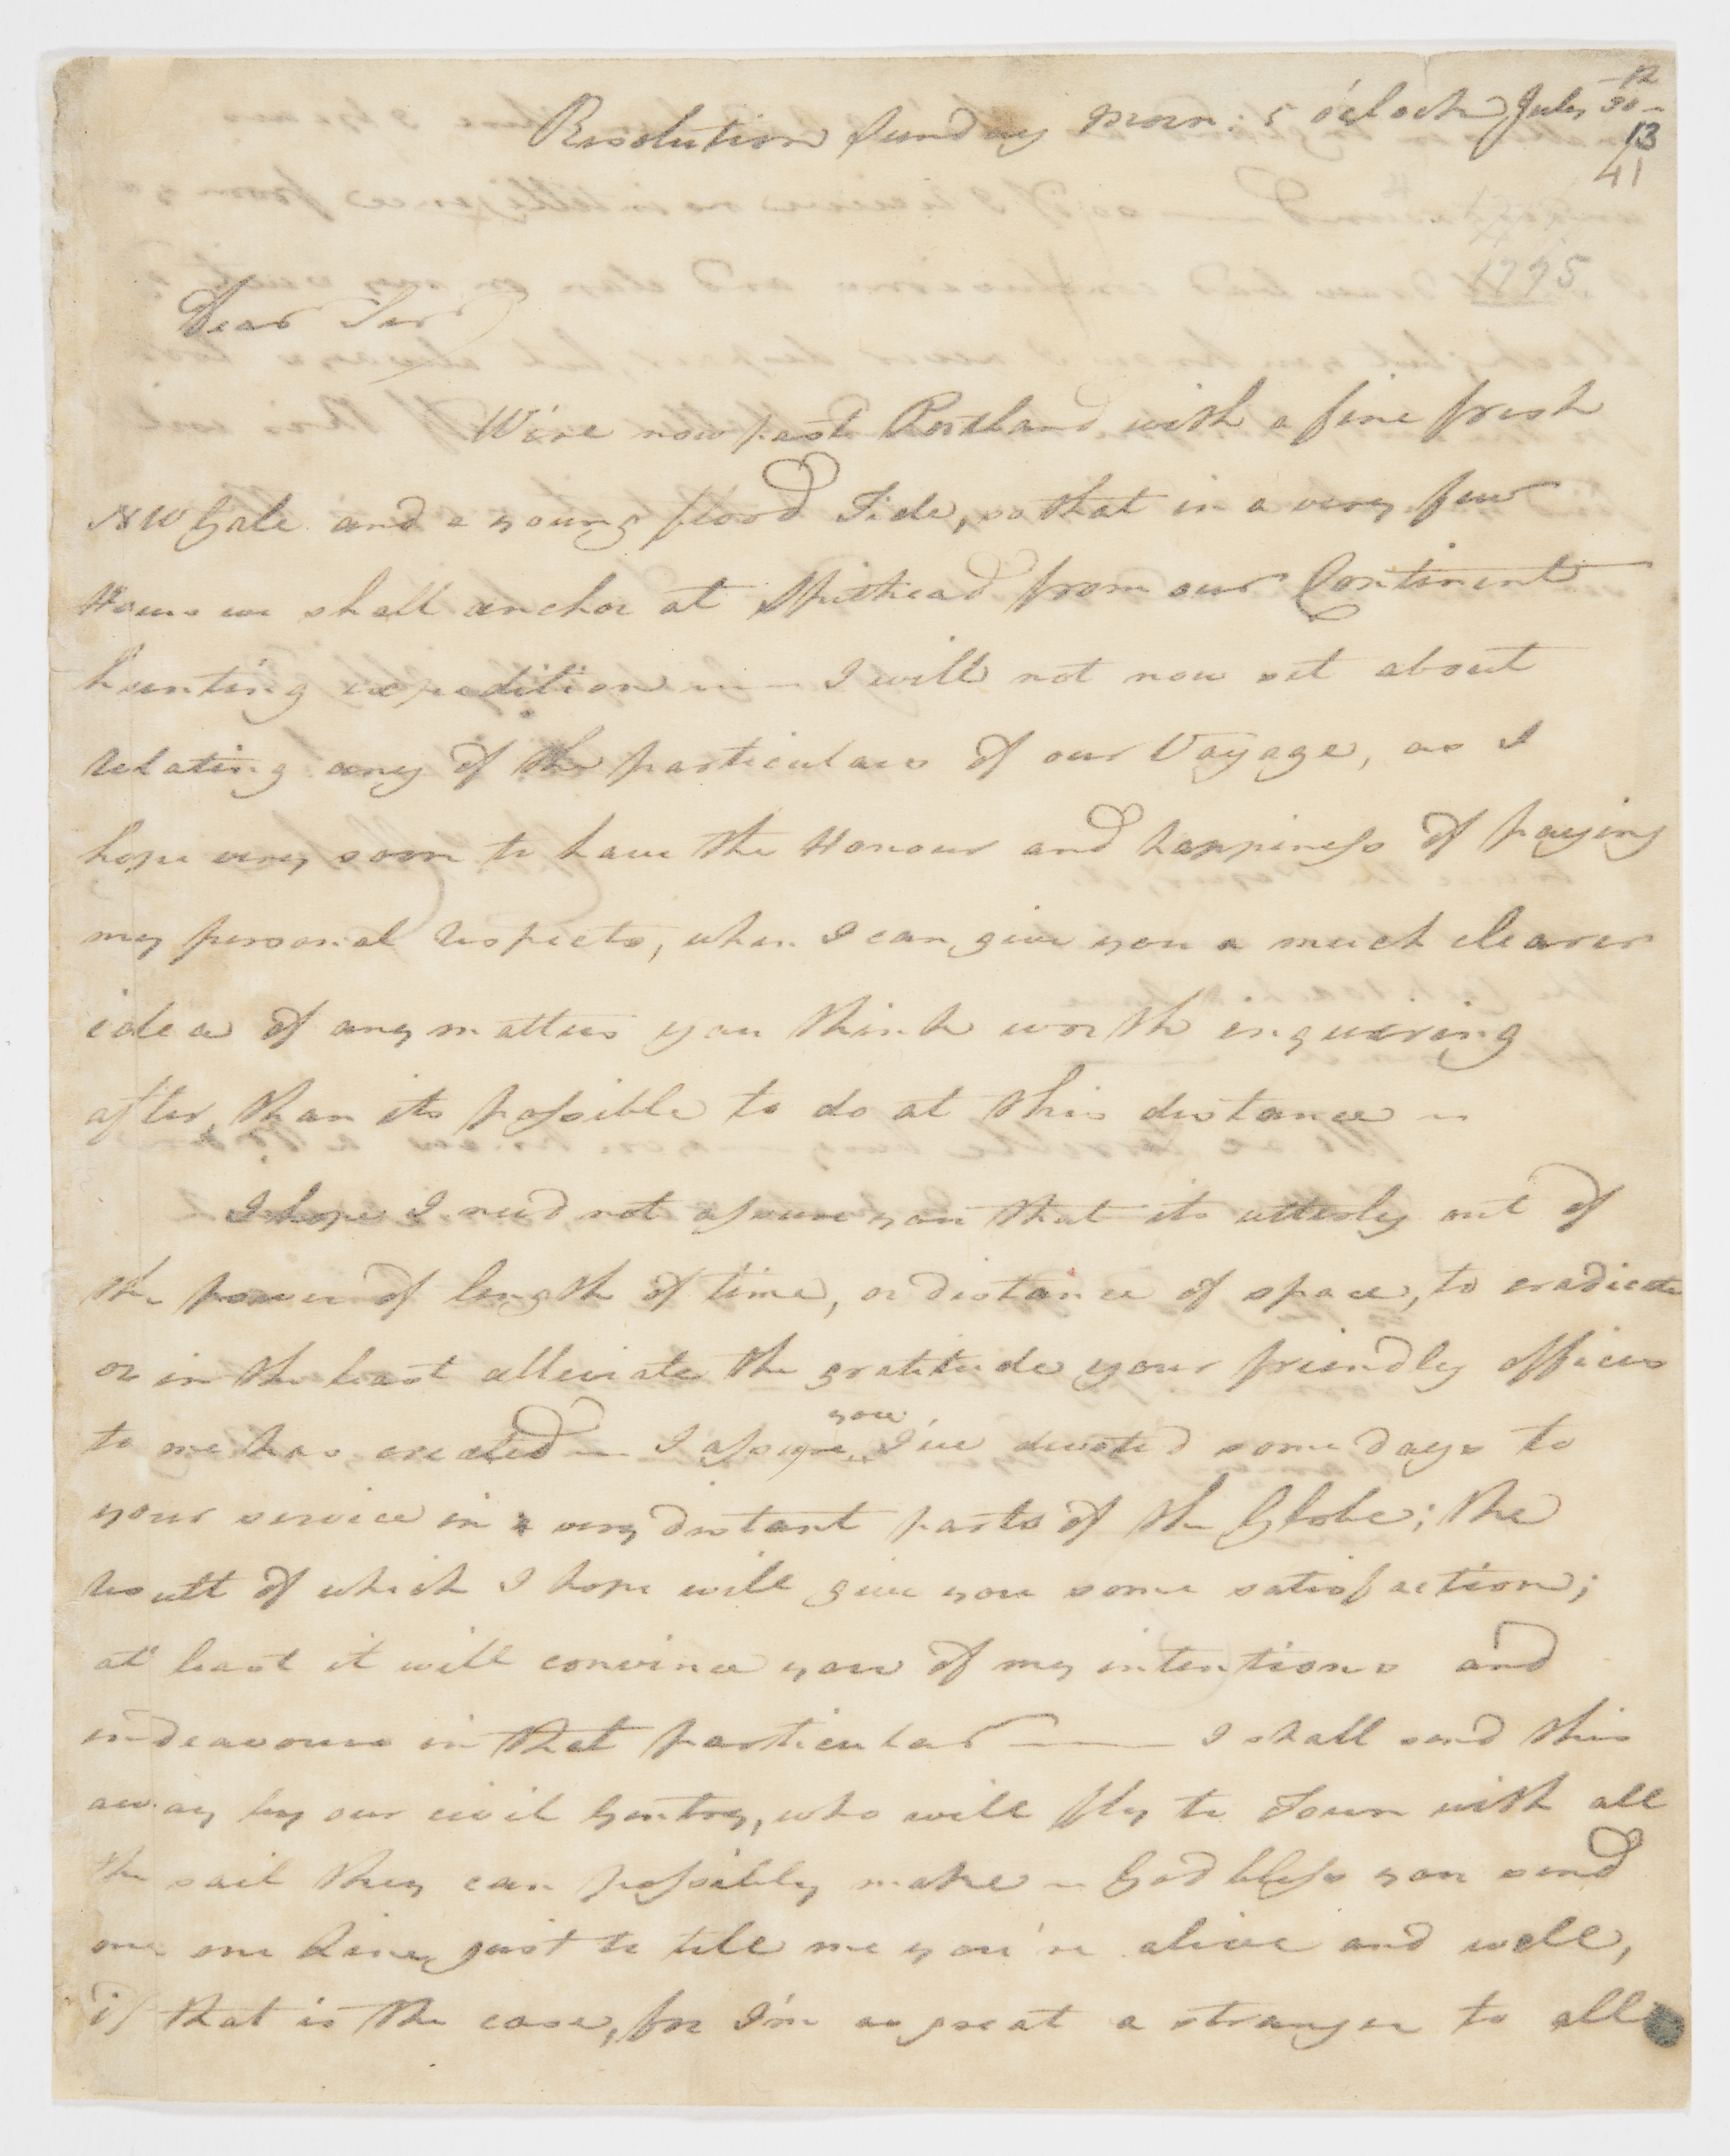 12
Resolution Sunday Morn: 5 o'Clock July 30
13
41
1775
Dear Sir
We're now past Portland with a fine fresh
NW Gale and a young flood Tide, so that in a very few
Hours we shall anchor at Spithead from our Continent
hunting expedition — I will not now set about
relating any of the particulars of our Voyage, as I
hope very soon to have the Honour and happiness of paying
my personal respects, when I can give you a much clearer
idea of any matters you think worth inquiring
after, than its possible to do at this distance —
I hope I need not assure you that its utterly out of
the power of length of time, or distance of space, to eradicate
or in the least alleviate the gratitude your friendly offices
to me has created — I assure you I've devoted some days to
your service in very distant parts of the Globe; the
result of which I hope will give you some satisfaction;
at least it will convince you of my intentions and
endeavours in that particular — I shall send this
away by our civil Gentry, who will fly to Town with all
the sail they can possibly make — God bless you send
me one Line, just to tell me you're alive and well,
if that is the case, for I'm as great a stranger to all